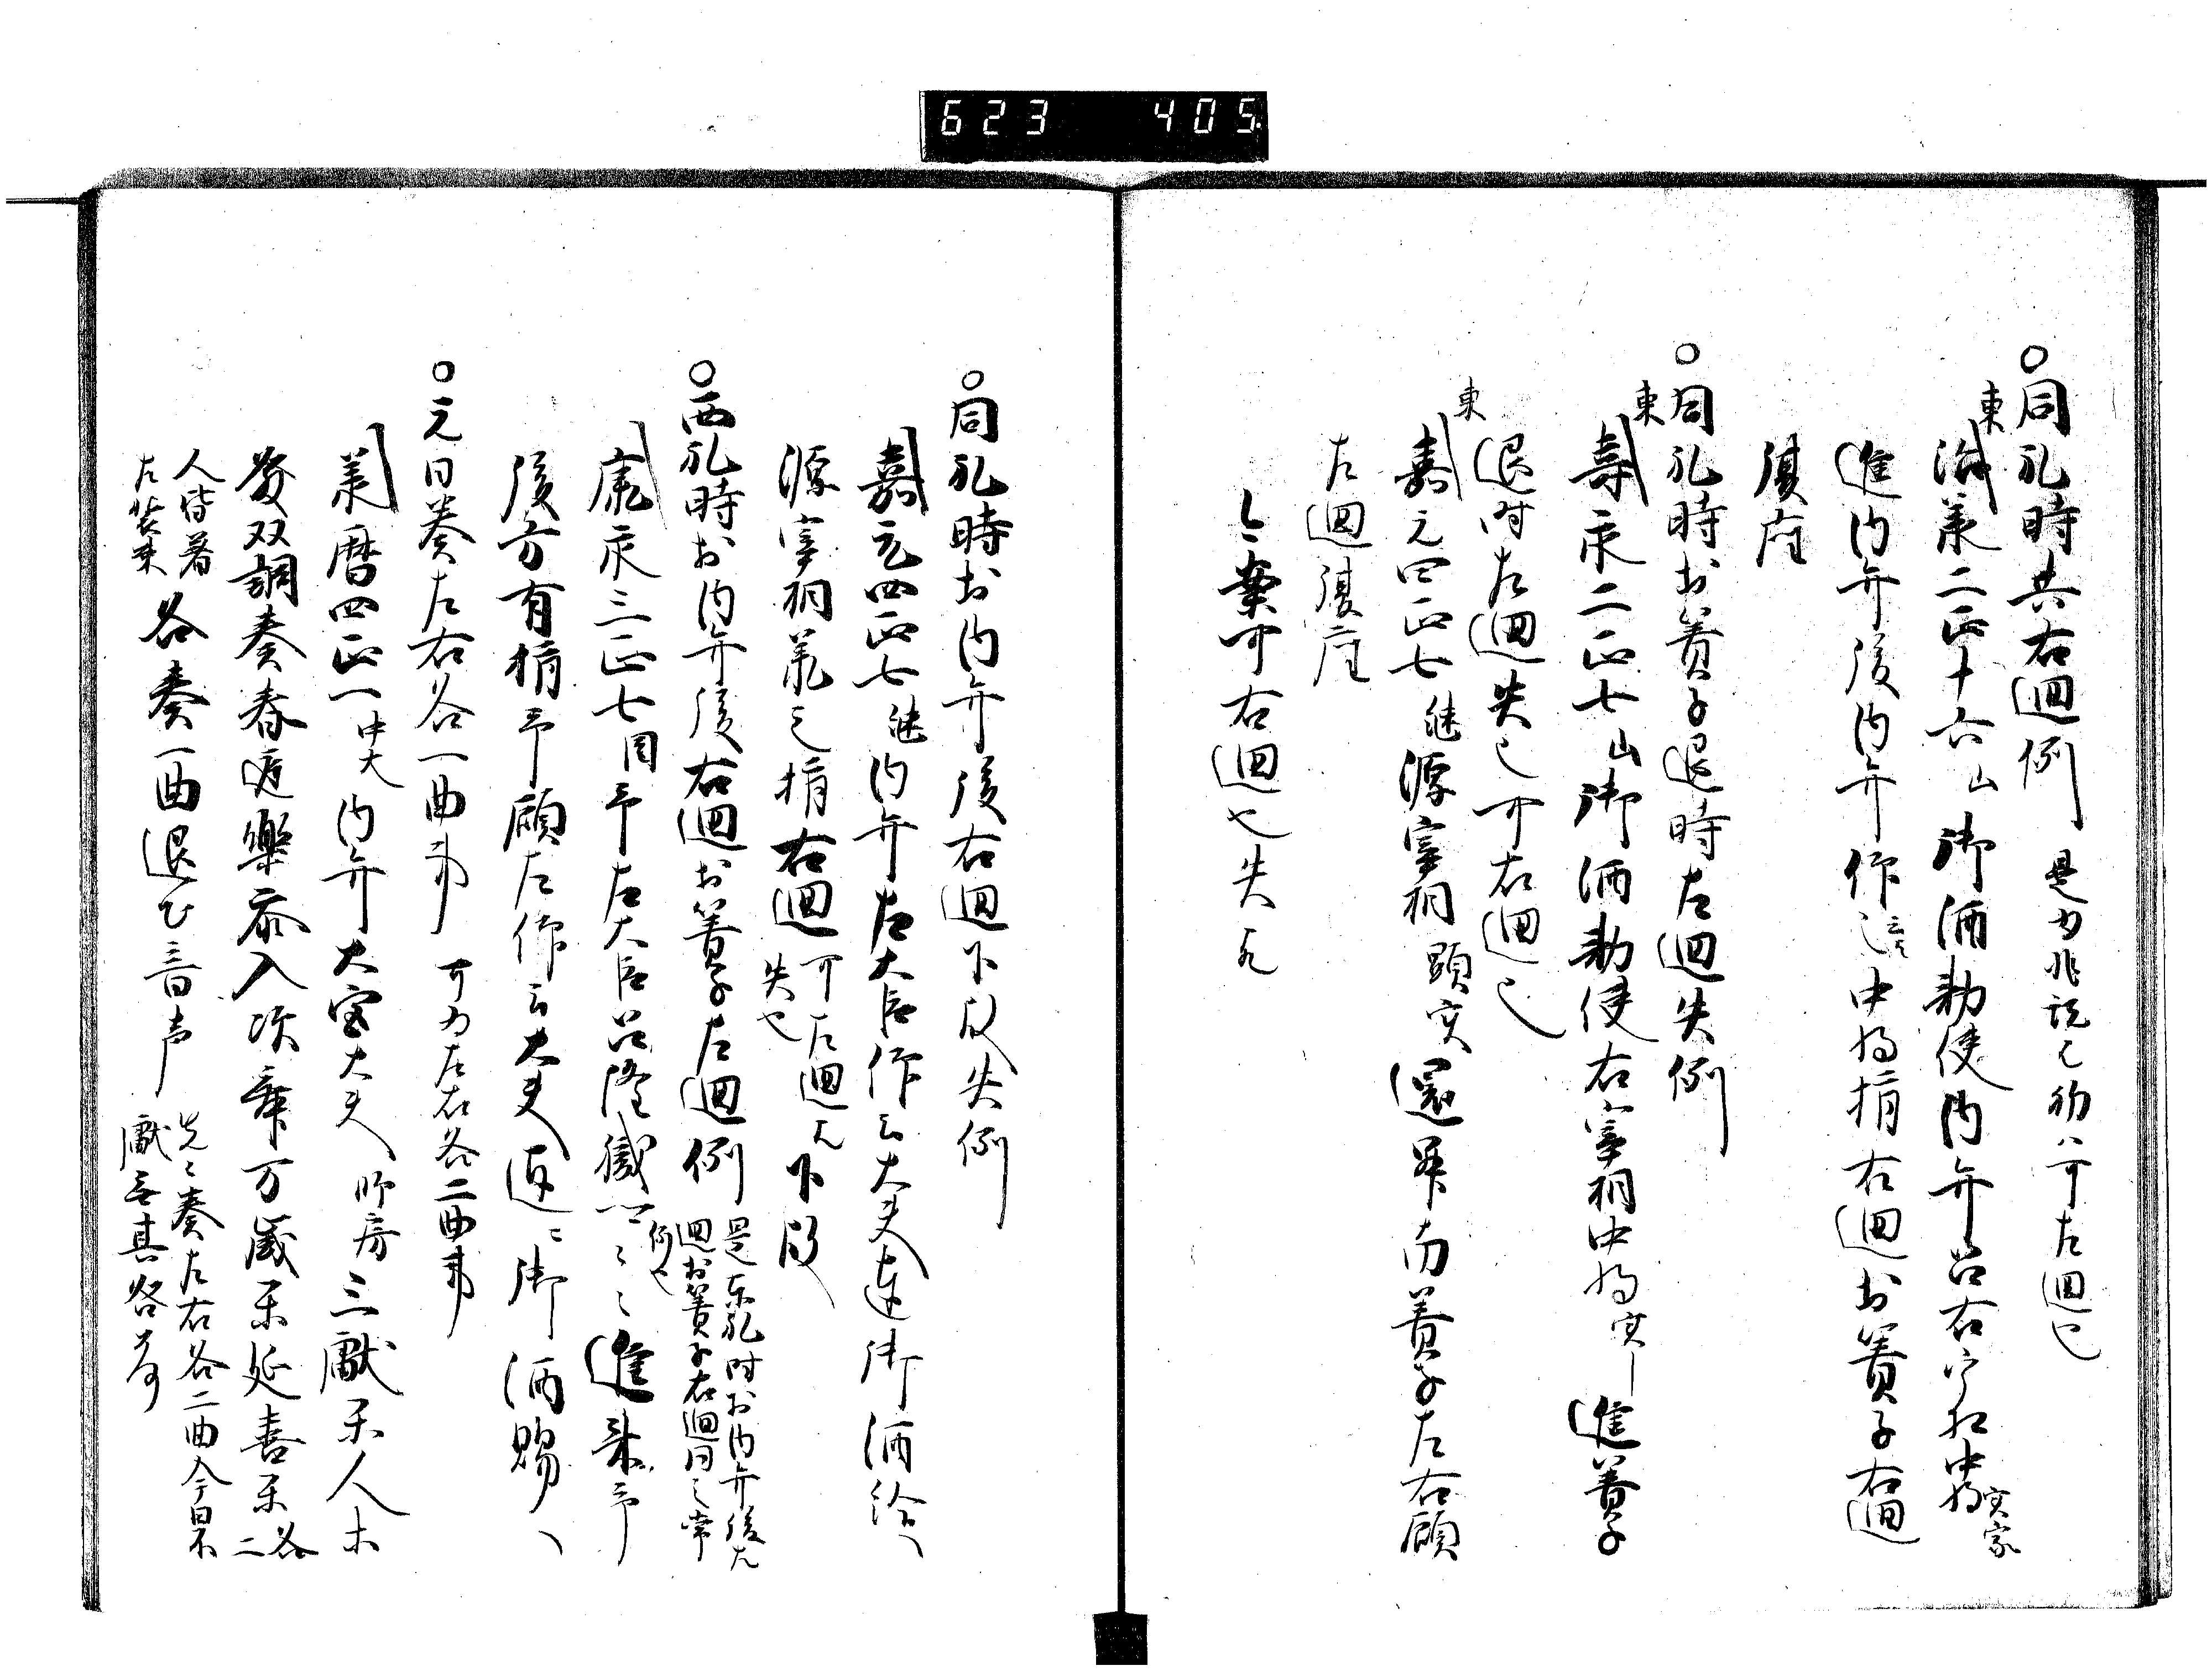 623 405
○同礼時共右廻例 是为非説也初ハ可左廻也
東
治承二正十六山御酒勅使内弁召右宰相中将実家
進内弁後内弁作法中将揖右廻於簀子右廻
復座
○同礼時於簀子退時左廻失例
東
寿永二正七山御酒勅使右宰相中将実―進簀子
退時左廻失也可右廻也
東
嘉元四正七継源宰相顕実還昇南簀子左右顧
左廻復座
今案可右廻也失礼
○同礼時於内弁後右廻下殿失例
嘉元四正七継内弁左大臣作云大夫達御酒給ヘ
源宰相兼之揖右廻可左廻也失也下殿
○西礼時於内弁後右廻於簀子左廻例 是東礼時於内弁後左廻於簀子右廻同之常例也
康永三正七同予左大臣召隆蔭々々々進来予
後方有揖予顧左作云大夫達ニ御酒賜ヘ
○元日奏左右各一曲事 可为左右各二曲事
承暦四正一中大内弁大宮大夫師房三献楽人等
発双調奏春庭楽参入次舞万歳楽延喜楽各二
人皆着左装束各奏一曲退出音声 先々奏左右各二曲今日不
献無其咎歟